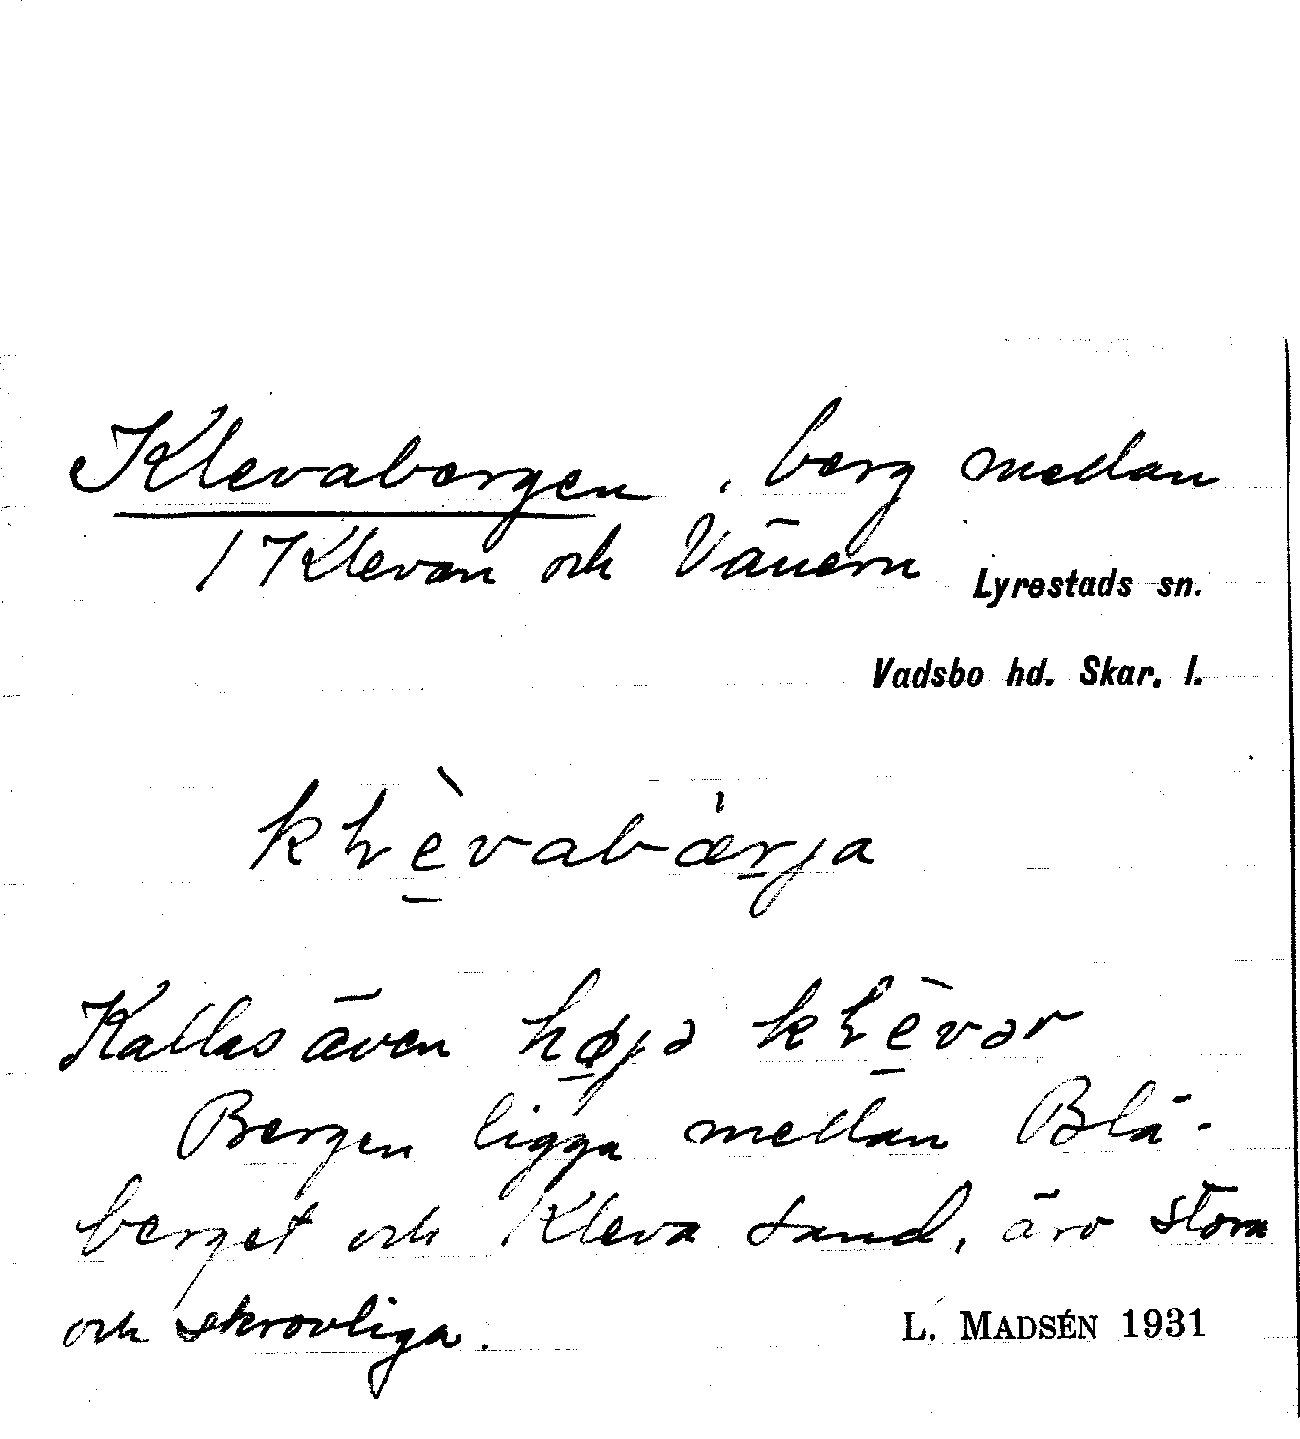 Klevabergen, berg medan
1 Klevan och Vänern
Lyrestads sn.
Vadsbo hd. Skar. l.
kɫè̱vabæ̀r̠ja
Kallas även hø̱jə kɫè̱vər
Bergen ligga mellan Blå-
berget och Kleva sand, äro stora
och skrovliga.
L. MADSÉN 1931